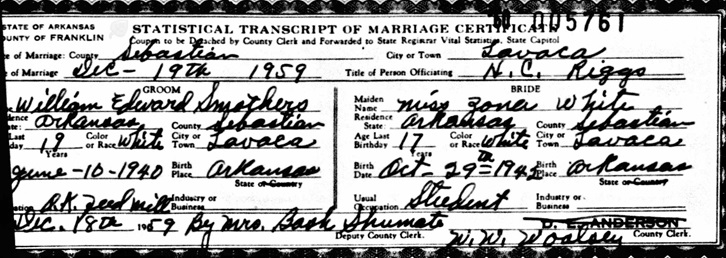 STATE OF ARKANSAS
COUNTY OF FRANKLIN
STATISTICAL TRANSCRIPT OF MARRIAGE CERTIFICATE
60 005761
Coupon to be Detached by County Clerk and Forwarded to State Registrar Vital Statistics, State Capitol
e of Marriage: County Sebastian City or Town Lavaca
e of Marriage Dec - 19th 1959 Title of Person Officiating H.C. Riggs
GROOM
William Edward Smothers
dence
ate: Arkansas County Sebastian
Last
day 19 Years Color or Race White City or Town Lavaca
June - 10 - 1940 Birth Place Arkansas
State or Country
ation O.K. Feed Mill Industry or Business
BRIDE
Maiden Name Miss Zona White
Residence State: Arkansas County Sebastian
Age Last Birthday 17 Years Color or Race White City or Town Lavaca
Birth Date Oct - 29th = 1942 Birth Place Arkansas
State or Country
Usual Occupation Student Industry or Business
Dec. 18th 1959 By Mrs. Shumate
Deputy County Clerk.
D. L. ANDERSON
W. W. Woolsey County Clerk.